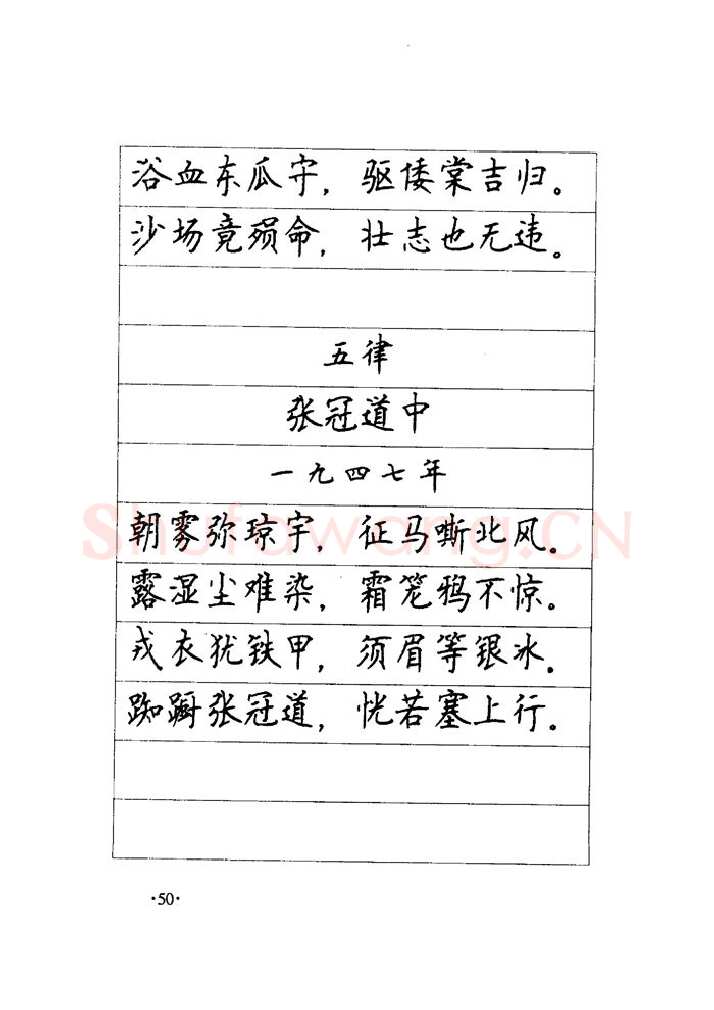 浴血东瓜守，驱倭棠吉归。
沙场竟殒命，壮志也无违。
五律
张冠道中
一九四七年
朝雾弥琼宇，征马嘶北风。
露湿尘难染，霜笼鸦不惊。
戎衣犹铁甲，须眉等银冰。
踟蹰张冠道，恍若塞上行。
Shufawang.CN
·50·